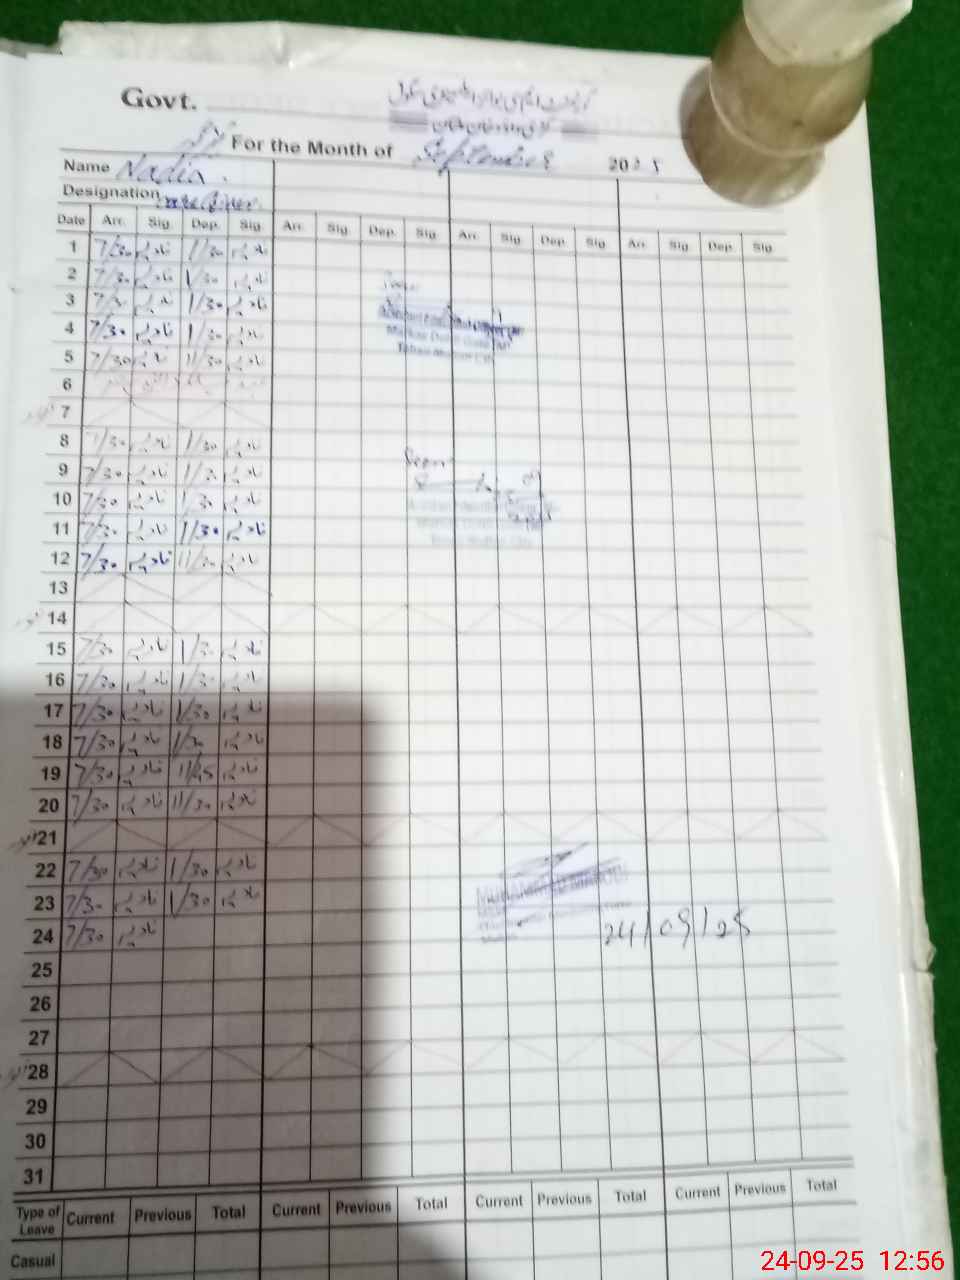 Govt.
For the Month of September 2025
Name Nadia
Designation Care Giver
Date Arr. Sig. Dep. Sig. Arr. Sig. Dep. Sig. Arr. Sig. Dep. Sig. Arr. Sig. Dep. Sig.
1 7/30 نادیہ 1/30 نادیہ
2 7/30 نادیہ 1/30 نادیہ
3 7/30 نادیہ 1/30 نادیہ
4 7/30 نادیہ 1/30 نادیہ
5 7/30 نادیہ 11/30 نادیہ
6
7
8 7/30 نادیہ 1/30 نادیہ
9 7/30 نادیہ 1/30 نادیہ
10 7/30 نادیہ 1/30 نادیہ
11 7/30 نادیہ 1/30 نادیہ
12 7/30 نادیہ 11/30 نادیہ
13
14
15 7/30 نادیہ 1/30 نادیہ
16 7/30 نادیہ 1/30 نادیہ
17 7/30 نادیہ 1/30 نادیہ
18 7/30 نادیہ 1/30 نادیہ
19 7/30 نادیہ 11/45 نادیہ
20 7/30 نادیہ 11/30 نادیہ
21
22 7/30 نادیہ 1/30 نادیہ
23 7/30 نادیہ 1/30 نادیہ
MUHAMMAD
24 7/30 نادیہ 24/09/25
25
26
27
28
29
30
31
Type of Leave Current Previous Total Current Previous Total Current Previous Total Current Previous Total
Casual
24-09-25 12:56